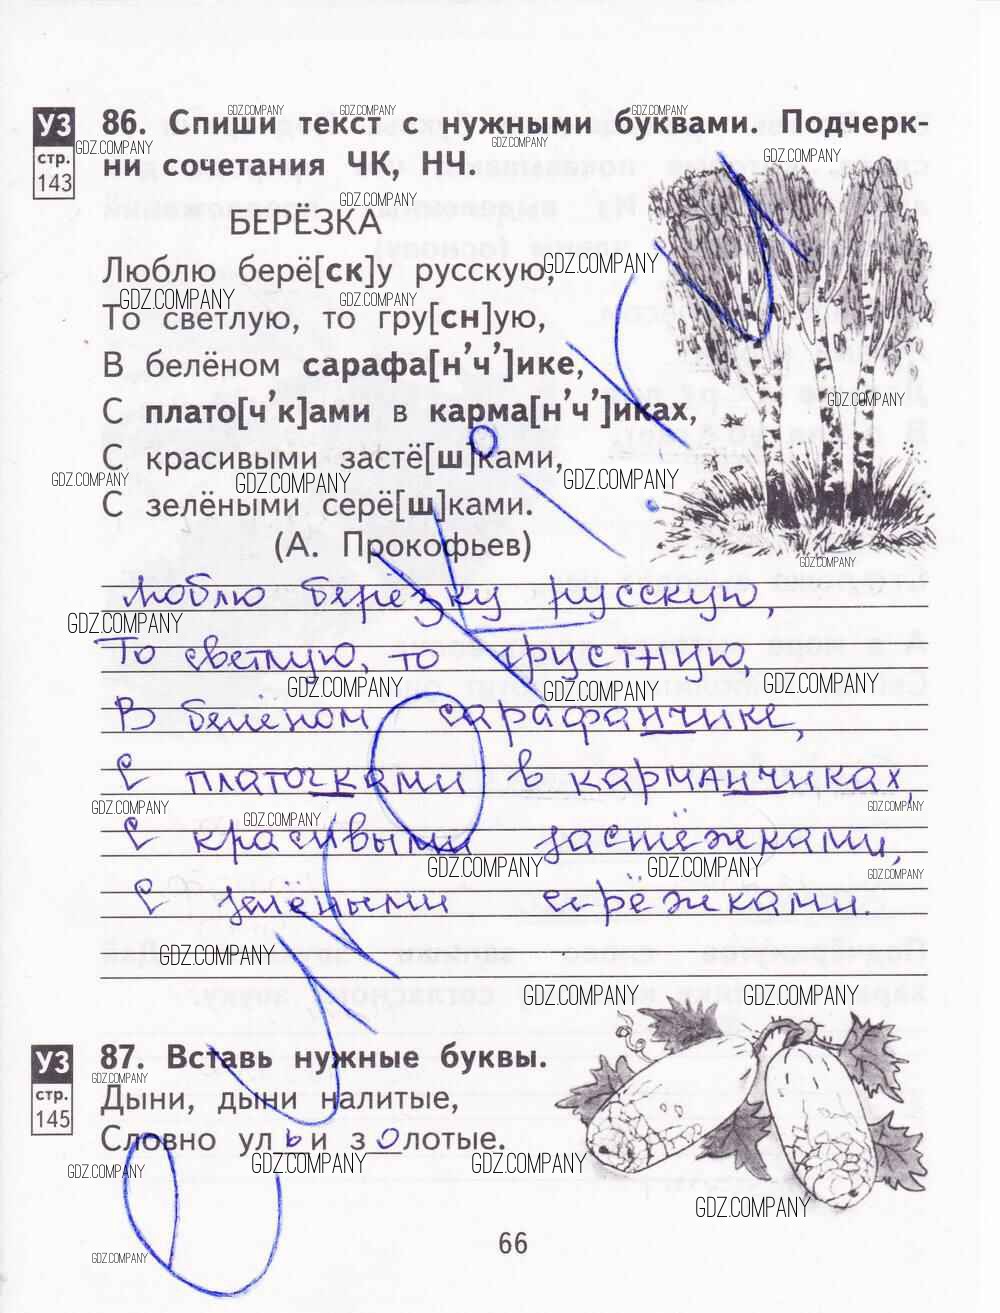 УЗ
стр.
143
86. Спиши текст с нужными буквами. Подчерк-
ни сочетания ЧК, НЧ.
БЕРЁЗКА
Люблю берё[ск]у русскую,
То светлую, то гру[сн]ую,
В белёном сарафа[н’ч’]ике,
С плато[ч’к]ами в карма[н’ч’]иках,
С красивыми застё[ш]ками,
С зелёными серё[ш]ками.
(А. Прокофьев)
Люблю берёзку русскую,
То светлую, то грустную,
В белёном сарафанчике,
С платочками в карманчиках,
С красивыми застёжками,
С зелёными серёжками.
УЗ
стр.
145
87. Вставь нужные буквы.
Дыни, дыни налитые,
Словно ульи золотые.
66
GDZ.COMPANY